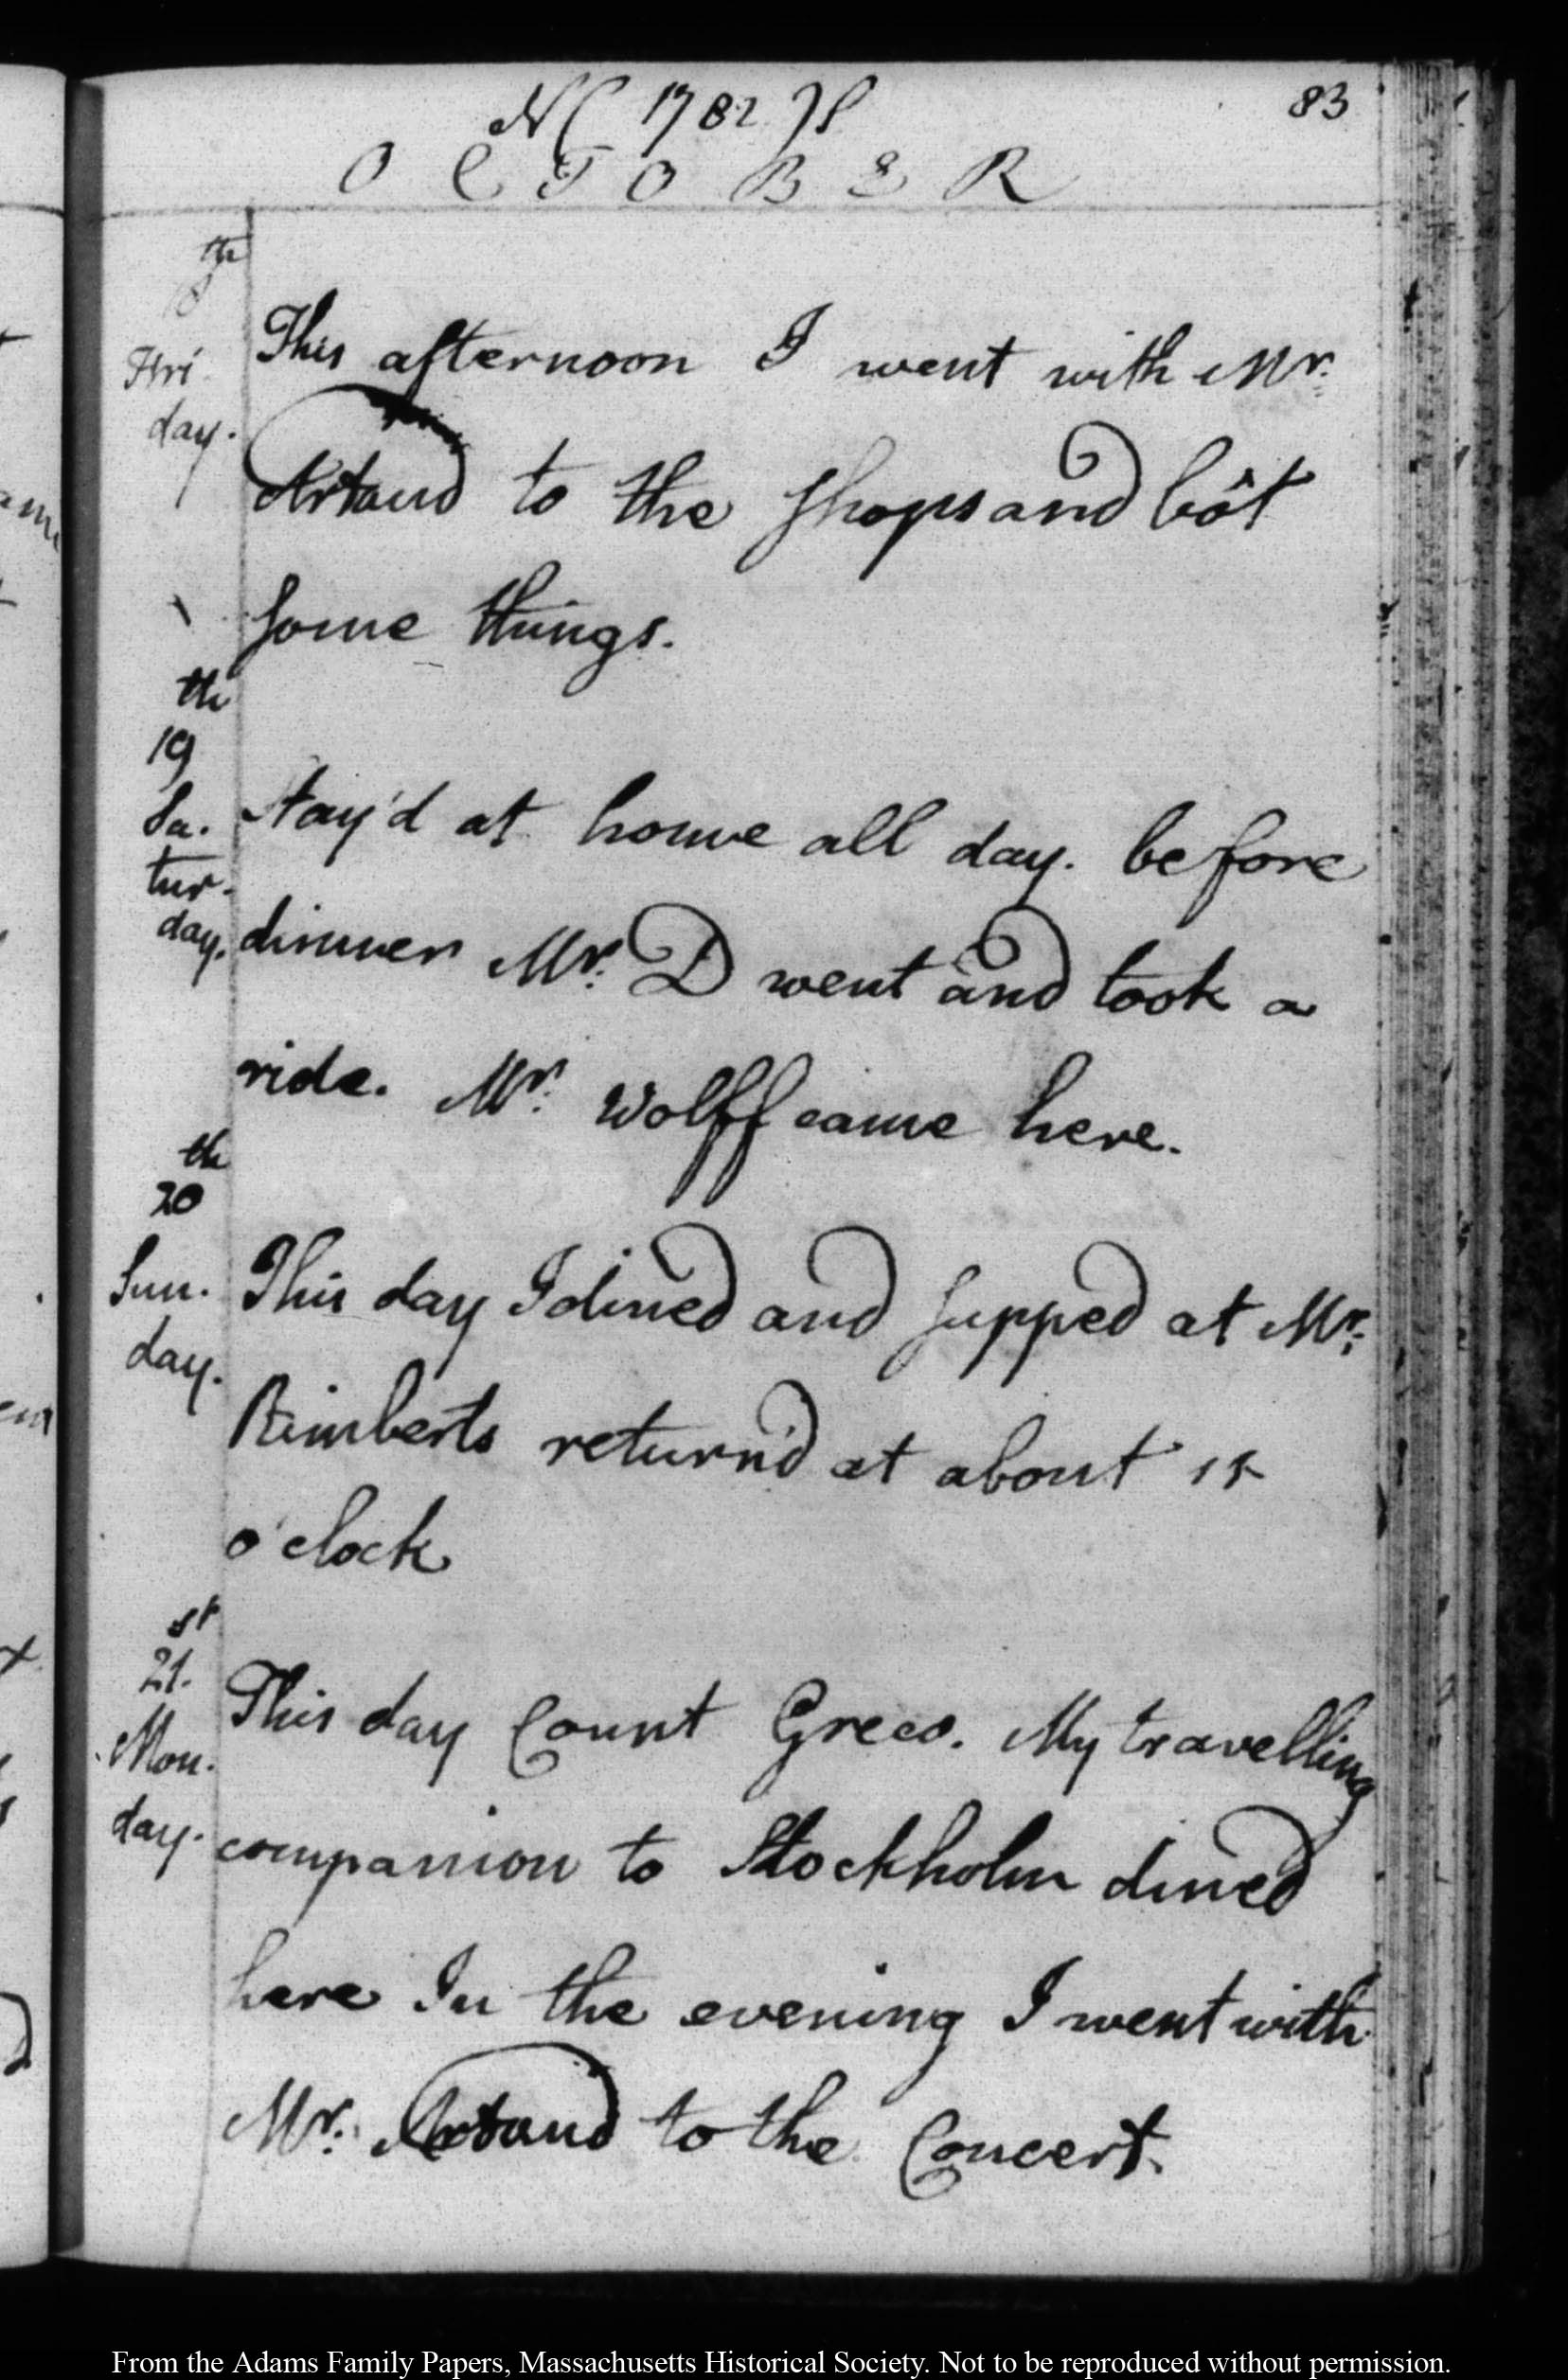 1782 83
OCTOBER
th
Fri
day.
This afternoon I went with Mr.
Artaud to the shops and bôt
some things.
th
19
Sa.
tur-
day.
Stay'd at home all day. before
dinner Mr. D went and took a
ride. Mr. Wolff came here.
th
20
Sun.
day.
This day I dined and supped at Mr.
Rimberts return'd at about
o'clock
st
21.
Mon.
day.
This day Count Greco. My travelling
companion to Stockholm dined
here In the evening I went with
Mr. Artaud to the Concert.
From the Adams Family Papers, Massachusetts Historical Society. Not to be reproduced without permission.